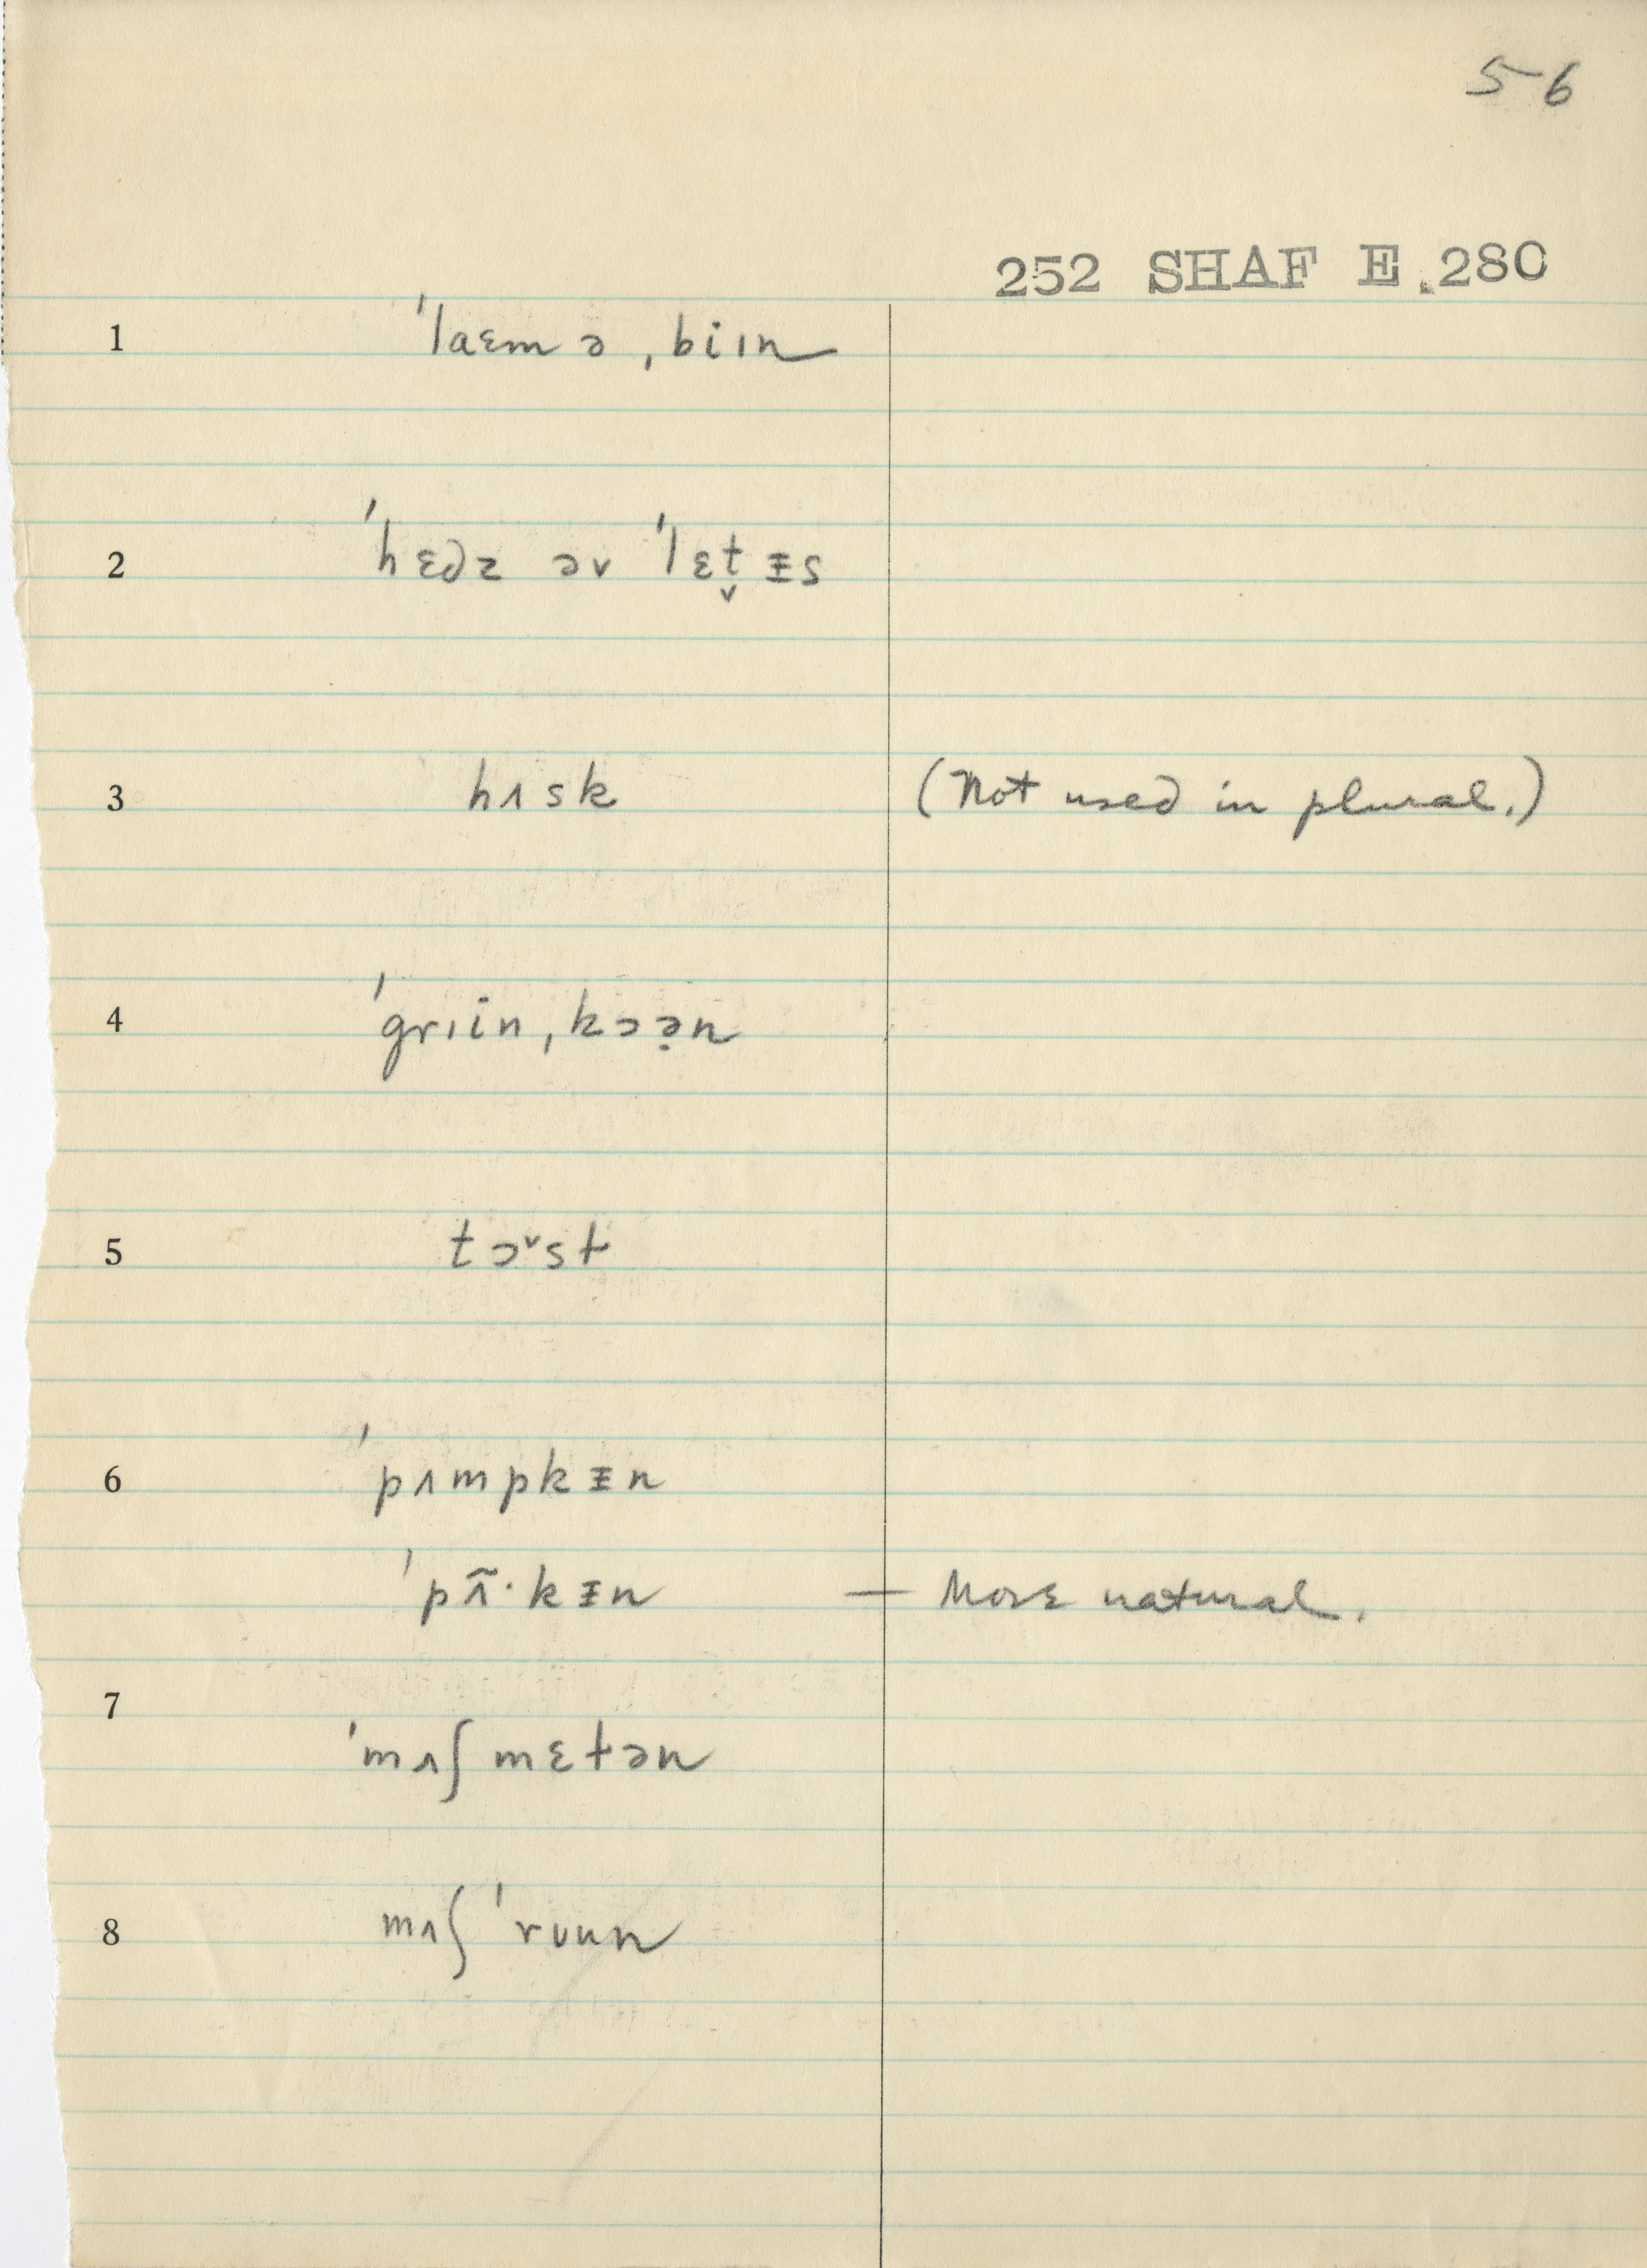 56
252 SHAF E.280
1 ˈlaɛm ə ˌbiɪn
2 ˈhɛdz əv ˈlɛt̬ᵻs
3 hʌsk (Not used in plural.)
4 ˈgrɪin ˌkɔə̣n
5 tɔ˅st
6 ˈpʌmpkᵻn
ˈpʌ̃·kᵻn — More natural.
7
ˈmʌʃmɛtən
8 mʌʃ ˈrʊun